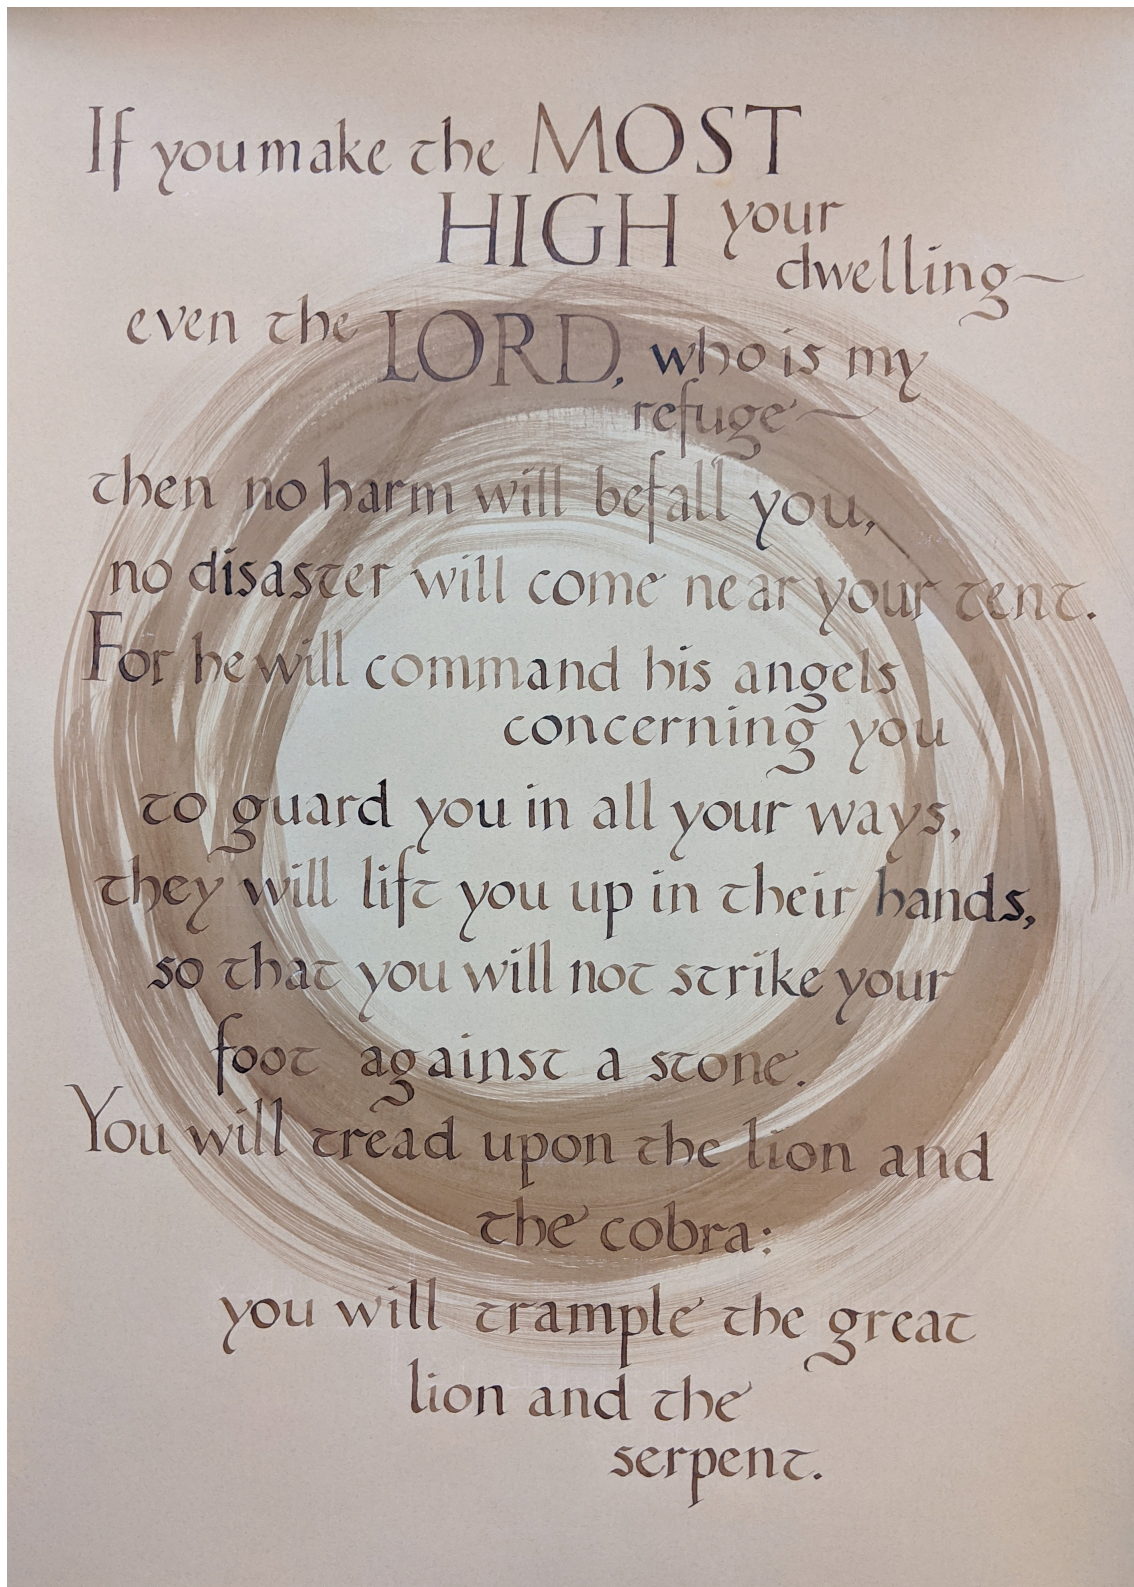 If you make the MOST
HIGH your
dwelling~
even the LORD, who is my
refuge~
then no harm will befall you,
no disaster will come near your tent.
For he will command his angels
concerning you
to guard you in all your ways,
they will lift you up in their hands,
so that you will not strike your
foot against a stone.
You will tread upon the lion and
the cobra:
you will trample the great
lion and the
serpent.